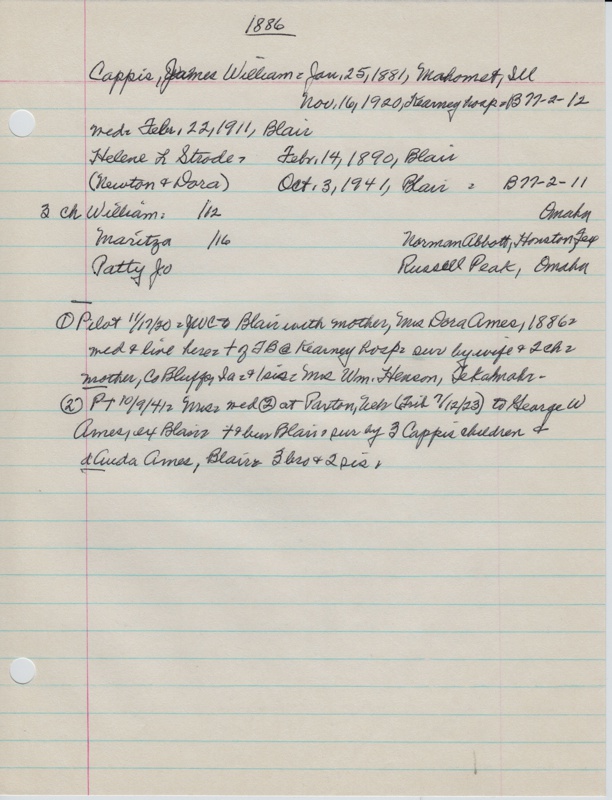 1886
Cappis, James William = Jan. 25, 1881, Mahomet, Ill
Nov. 16, 1920, Kearney hosp = B77-2-12
med = Febr. 22, 1911, Blair
Helene L Strode = Febr. 14, 1890, Blair
(Newton & Dora) Oct. 3, 1941, Blair = B77-2-11
3 ch William = 1/12 Omaha
Maritza 1/16 Norman Abbott, Houston, Tex
Patty Jo Russell Peak, Omaha
① Pilot 11/17/20 = JWC to Blair with mother, Mrs Dora Ames, 1886 =
med & live here = + of TB @ Kearney hosp = sur by wife & 2 ch =
mother, Co Bluffs, Ia = & 1 sis = Mrs Wm. Henson, Tekamah -
② PT 10/9/41 = Mrs = med ② at Paxton, Neb (Trib 7/12/23) to George W
Ames, ex Blair = + & bur Blair = sur by 3 Cappis children &
d Auda Ames, Blair = 3 bro & 2 sis.